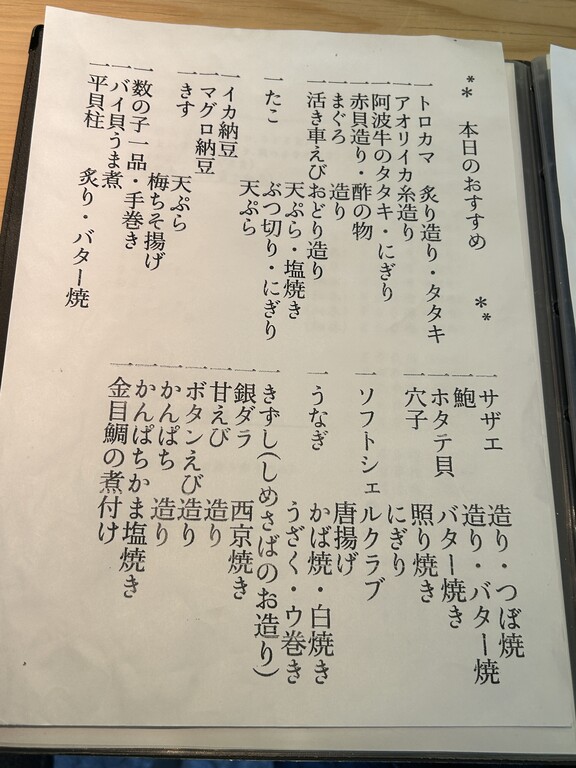 ** 本日のおすすめ **
一 トロカマ 炙り造り・タタキ
一 アオリイカ糸造り
一 阿波牛のタタキ・にぎり
一 赤貝造り・酢の物
一 まぐろ 造り
一 活き車えびおどり造り
天ぷら・塩焼き
一 たこ ぶつ切り・にぎり
天ぷら
一 イカ納豆
一 マグロ納豆
一 きす 天ぷら
梅ちそ揚げ
一 数の子一品・手巻き
一 バイ貝うま煮
一 平貝柱 炙り・バター焼
一 サザエ 造り・つぼ焼
一 鮑 造り・バター焼
一 ホタテ貝 バター焼き
一 穴子 照り焼き
にぎり
一 ソフトシェルクラブ
唐揚げ
一 うなぎ かば焼・白焼き
うざく・ウ巻き
一 きずし(しめさばのお造り)
一 銀ダラ 西京焼き
一 甘えび 造り
一 ボタンえび造り
一 かんぱち 造り
一 かんぱちかま塩焼き
一 金目鯛の煮付け